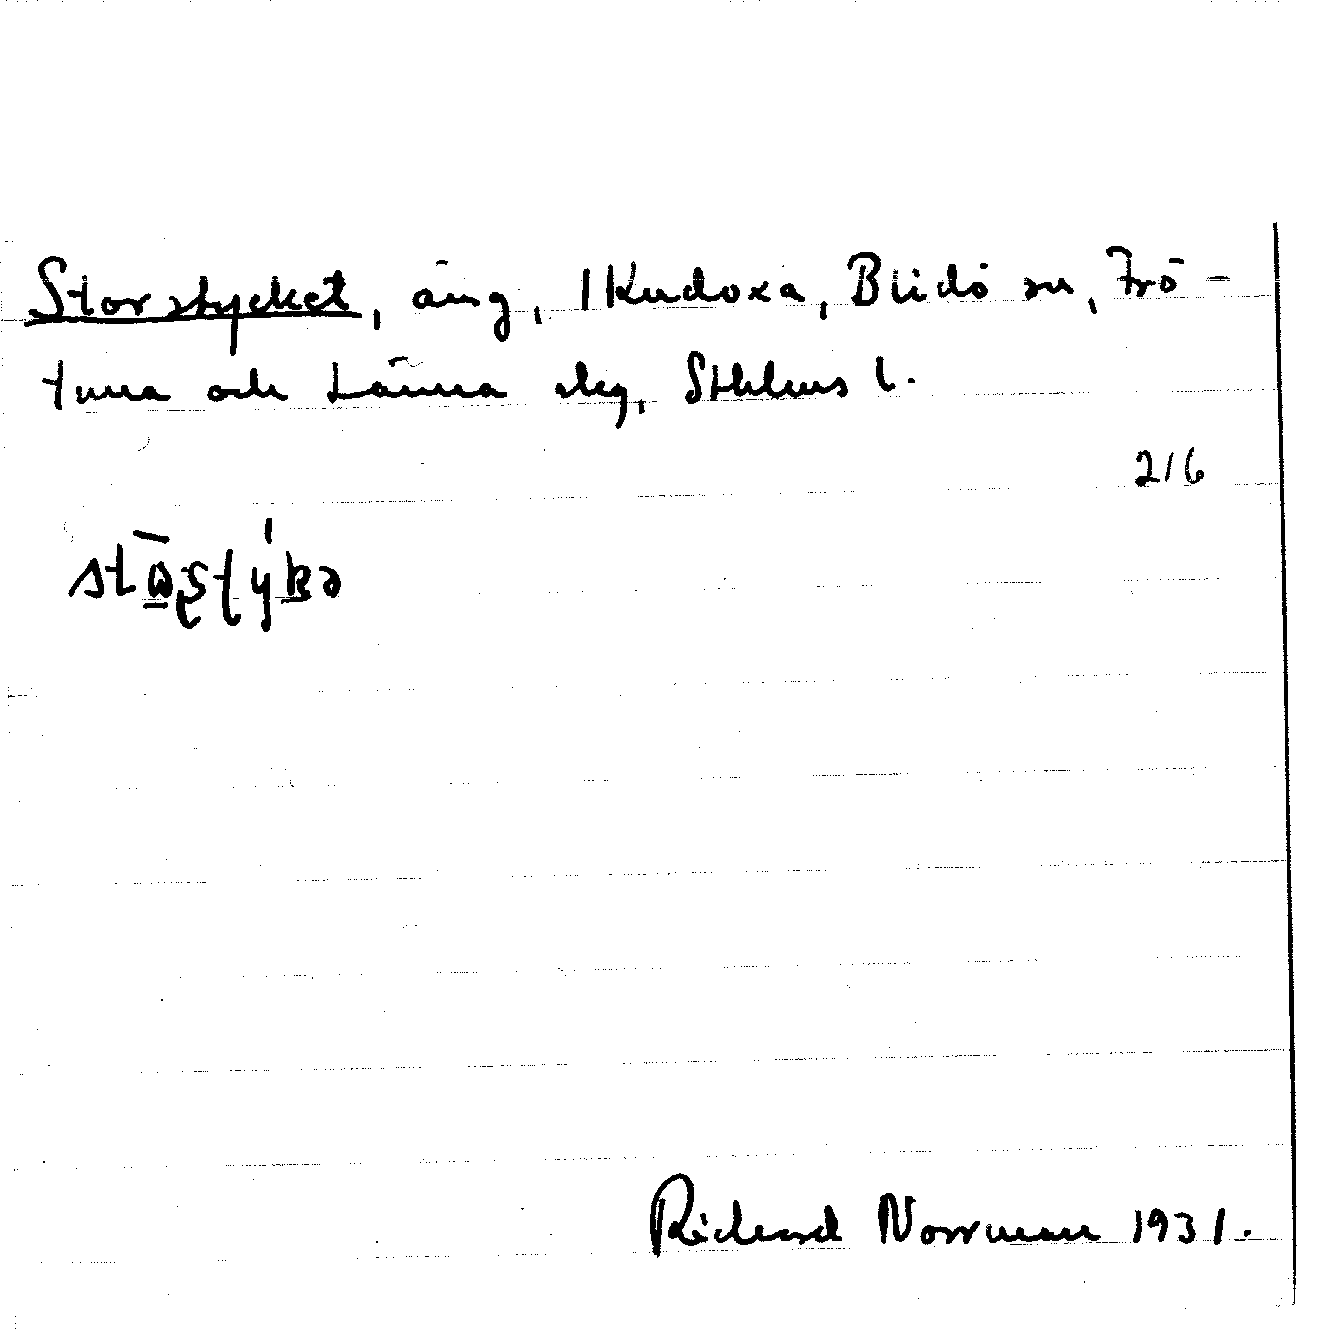 Storstycket, äng, 1 Kudoxa, Blidö sn, Frö-
tuna och Länna skg, Sthlms l.
216
Richard Norrman 1931.